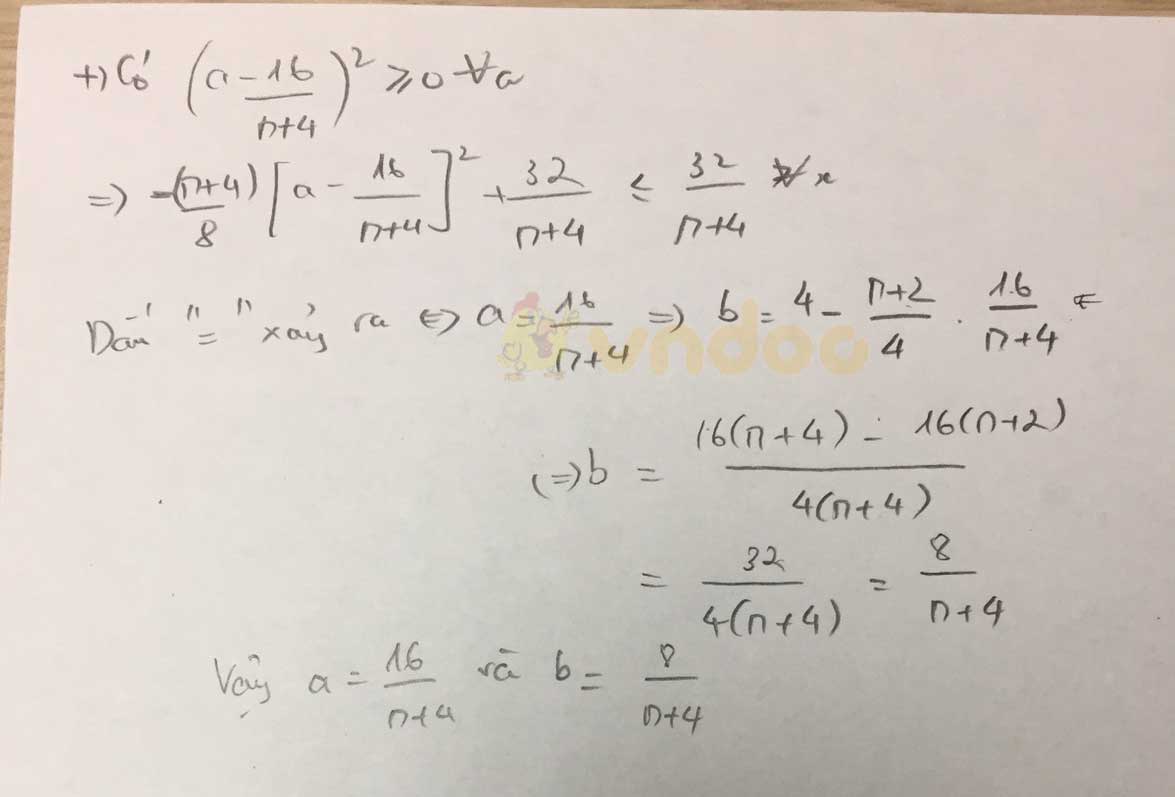 +) Có (a - 16/(n+4))² ⩾ 0 ∀a
=> -(n+4)/8 [a - 16/(n+4)]² + 32/(n+4) ≤ 32/(n+4) ∀x
Dấu "=" xảy ra <=> a = 16/(n+4) => b = 4 - (n+2)/4 . 16/(n+4)
vndoc
(=> b = (16(n+4) - 16(n+2))/(4(n+4))
= 32/(4(n+4)) = 8/(n+4)
Vậy a = 16/(n+4) và b = 8/(n+4)